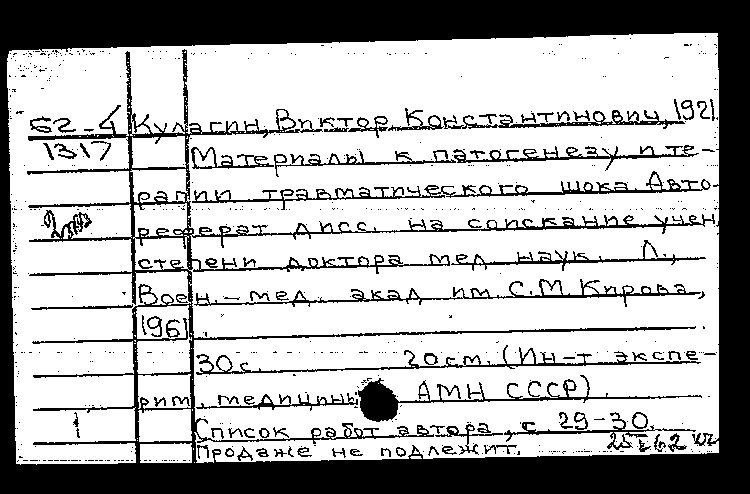 62-4 Кулагин, Виктор Константинович, 1921
1317 Материалы к патогенезу и те-
рапии травматического шока. Авто-
реферат дисс. на соискание учен.
степени доктора мед. наук. Л.,
Воен.-мед. акад им. С.М. Кирова,
1961.
30 с. 20 см. (Ин-т экспе-
рим. медицины АМН СССР).
1 Список работ автора, с 29-30.
Продаже не подлежит.